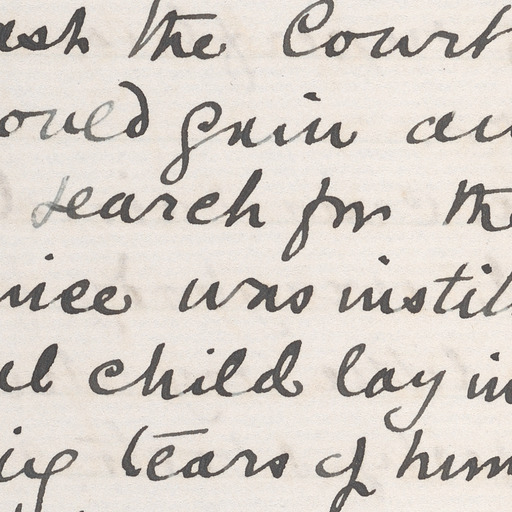 ash the Court
ould gain an
search for the
nice was instit
al child lay in
ing tears of hum